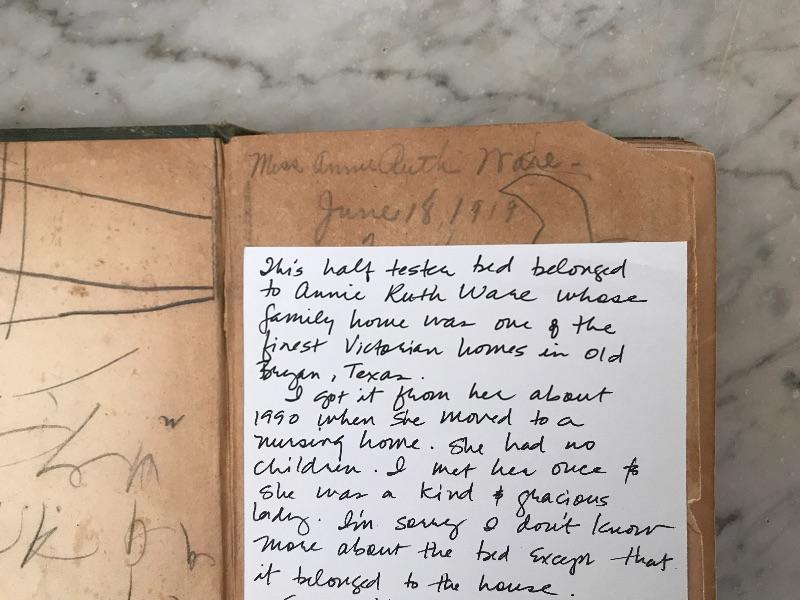 Miss Annie Ruth Ware -
June 18, 1919
This half tester bed belonged
to Annie Ruth Ware whose
family home was one of the
finest Victorian homes in Old
Bryan, Texas.
I got it from her about
1990 when she moved to a
nursing home. She had no
children. I met her once &
she was a kind & gracious
lady. I'm sorry I don't know
more about the bed except that
it belonged to the house.